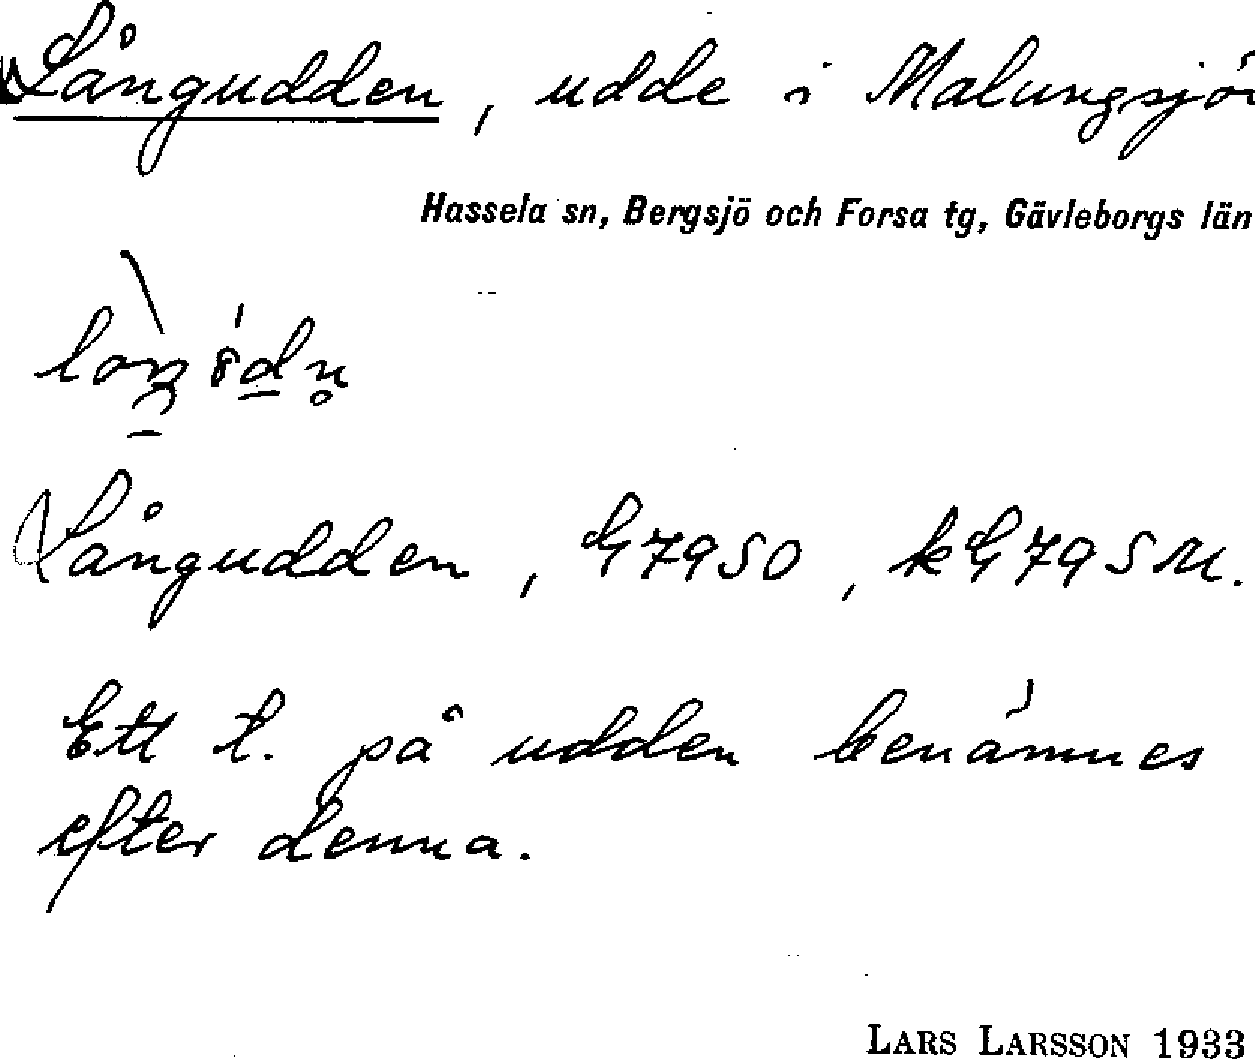 Långudden, udde i Malungsjö
Hassela sn, Bergsjö och Forsa tg, Gävleborgs län
Långudden, G7950, kG795M.
Ett t. på udden benämnes
efter denna.
LARS LARSSON 1933